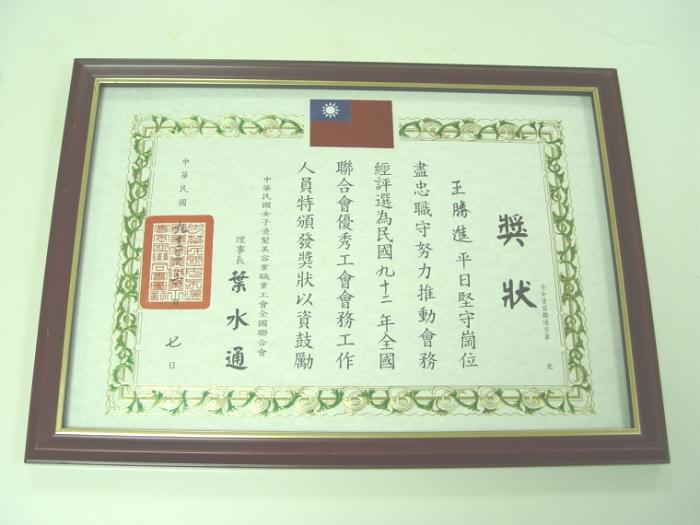 獎狀
王勝進平日堅守崗位
盡忠職守努力推動會務
經評選為民國九十二年全國
聯合會優秀工會會務工作
人員特頒發獎狀以資鼓勵
中華民國女子燙髮美容業職業工會全國聯合會
理事長 葉水通
中華民國 九十 月 七日